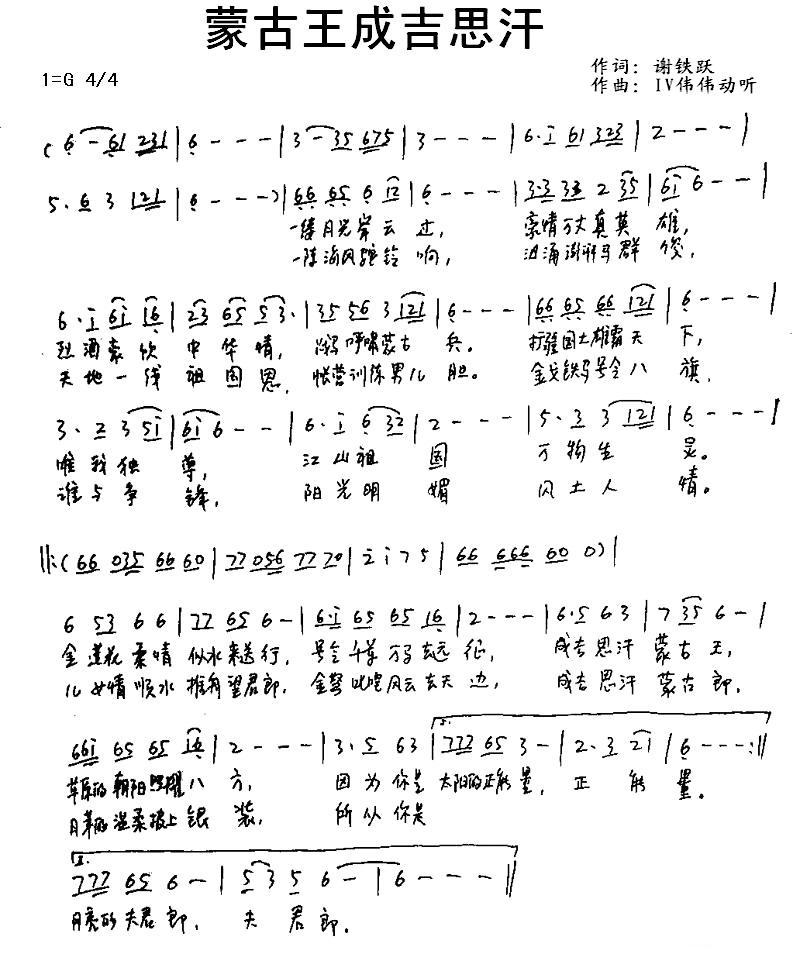 蒙古王成吉思汗
1=G 4/4
作词: 谢铁跃
作曲: IV伟伟动听
(6 - 61 231 | 6 - - - | 3 - 35 675 | 3 - - - | 6·i 61 323 | 2 - - - |
5·6 3 121 | 6 - - -) | 66 65 6 12 | 6 - - - | 3·3 33 2 35 | 6i 6 - - |
月光 云 过, 豪情万丈真英 雄,
一阵海风驼铃 响, 汹涌澎湃马群
6·i 6i 16 | 23 65 53· | 35 56 3 121 | 6 - - - | 66 65 66 121 | 6 - - - |
烈酒豪饮 中华情, 呼啸蒙古 兵。 打疆国土雄霸天 下,
天地一线 祖国恩, 帐营训练男儿 胆。 金戈铁马号令八 旗,
3·2 3 5i | 6i 6 - - | 6·i 6 32 | 2 - - - | 5·3 3 121 | 6 - - - |
唯我独 尊, 江山祖 国 万物生 灵。
谁与争 锋, 阳光明 媚 风土人 情。
||:(66 035 66 60 | 77 056 77 70 | 2 i 7 5 | 66 666 60 0) |
6 53 6 6 | 77 65 6 - | 6·i 65 65 16 | 2 - - - | 6·5 6 3 | 7 35 6 - |
金莲花柔情 似水来送行, 号令千军万马去远 征, 成吉思汗 蒙古王,
儿女情顺水 望君郎, 金弩叱咤风云去天 边, 成吉思汗 蒙古郎,
66i 65 65 16 | 2 - - - | 3·5 63 | 777 65 3 - | 2·3 2i | 6 - - - :||
草原的朝阳照耀八 方, 因为你是 太阳的正能量, 正 能 量。
的温柔披上银 装, 所以你是
2.
777 65 6 - | 5 3 5 6 - | 6 - - - ||
月亮的夫君郎, 夫 君 郎。